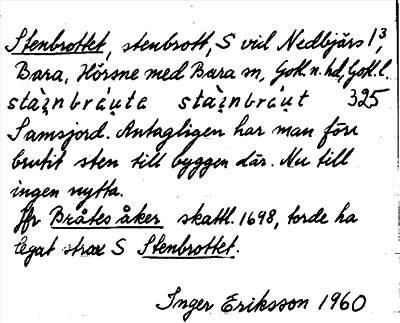 Stenbrottet, stenbrott, S vid Nedbjärs 1³,
Bara, Hörsne med Bara sn, Gotl. n. hd, Gotl. l.
stàınbràuta stàınbràut 325
Samsjord. Antagligen har man förr
brutit sten till byggen där. Nu till
ingen nytta.
Jfr Bråtes åker skattl. 1698, torde ha
legat strax S Stenbrottet.
Inger Eriksson 1960